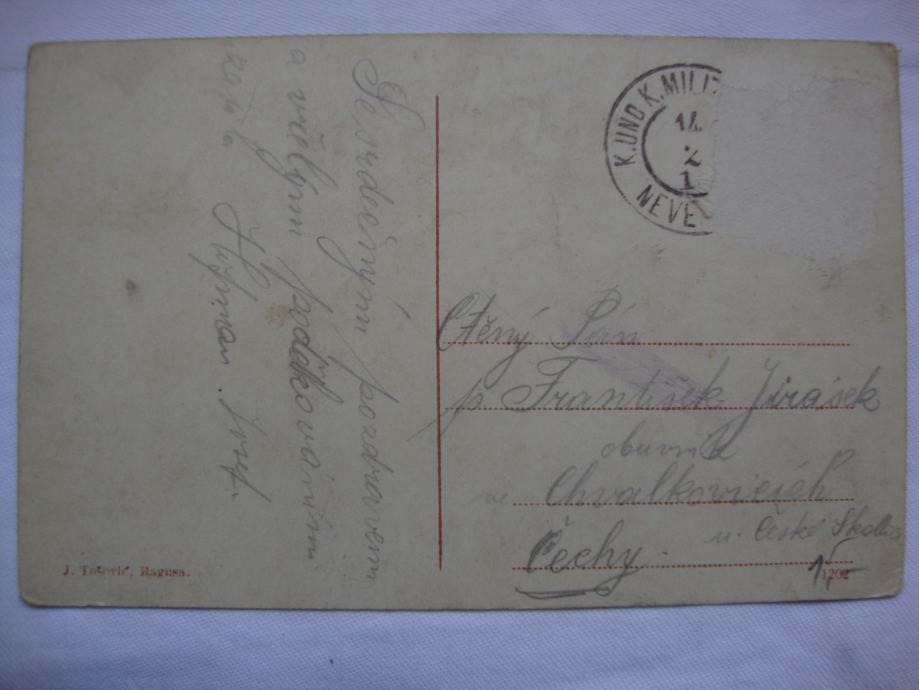 Se srdečným pozdravem
a vřelým poděkováním
za
Josef.
K. UND K. MILIT
14.
2
1
NEVE
Ctěný Pán
p. František Jirásek
obuvník
ve Chvalkovicích
u. České Skalice
Čechy.
J. Tošović, Ragusa.
1202